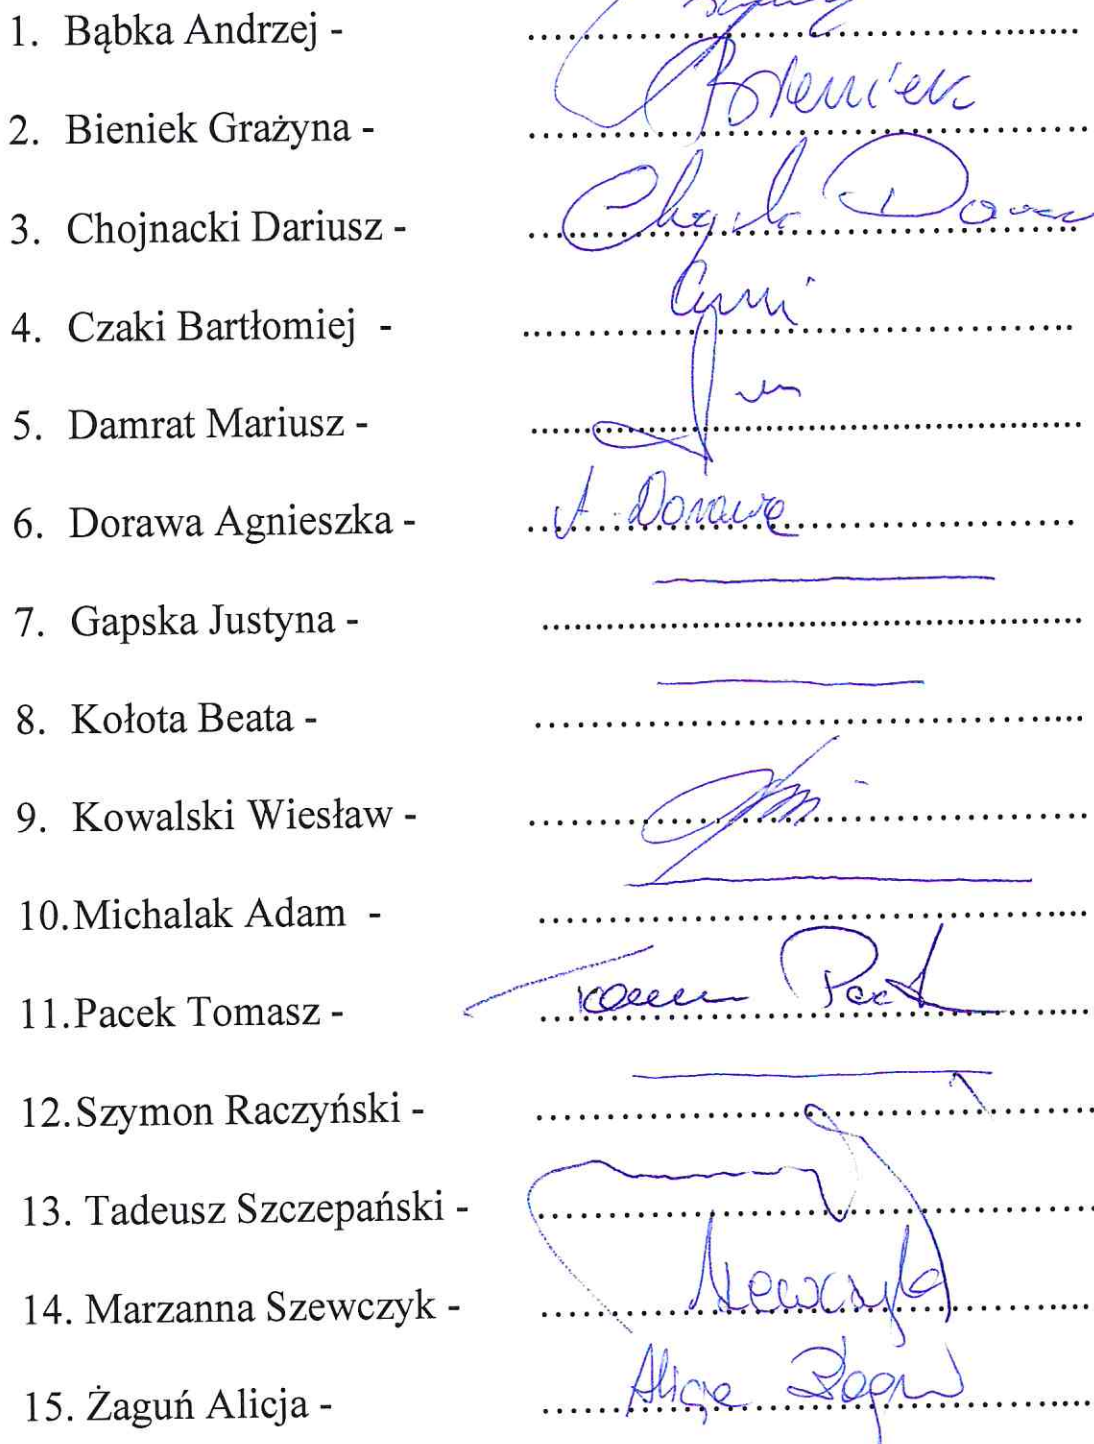 1. Bąbka Andrzej - ....................
2. Bieniek Grażyna - .................... Bieniek
3. Chojnacki Dariusz - ....................
4. Czaki Bartłomiej - ....................
5. Damrat Mariusz - ....................
6. Dorawa Agnieszka - .................... A. Dorawa
7. Gapska Justyna - ....................
8. Kołota Beata - ....................
9. Kowalski Wiesław - ....................
10. Michalak Adam - ....................
11. Pacek Tomasz - ....................
12. Szymon Raczyński - ....................
13. Tadeusz Szczepański - ....................
14. Marzanna Szewczyk - .................... Szewczyk
15. Żaguń Alicja - .................... Alicja Żaguń